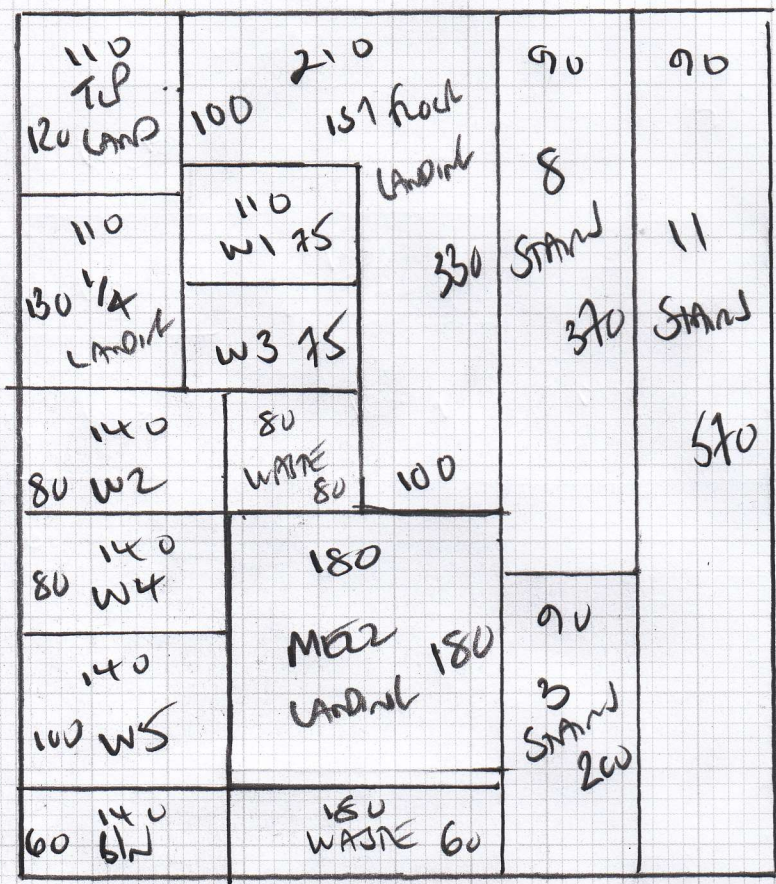 110
120 LAND
210
100
1ST FLOOR
LANDING
330
100
90
8
STAIRS
370
90
11
STAIRS
570
110
130 1/4
LANDING
110
W1 75
W3 75
140
80 W2
80
WASTE
80
140
80 W4
180
MEZZ
180
LANDING
90
3
STAIRS
200
140
100 W5
140
60 BIN
180
WASTE 60